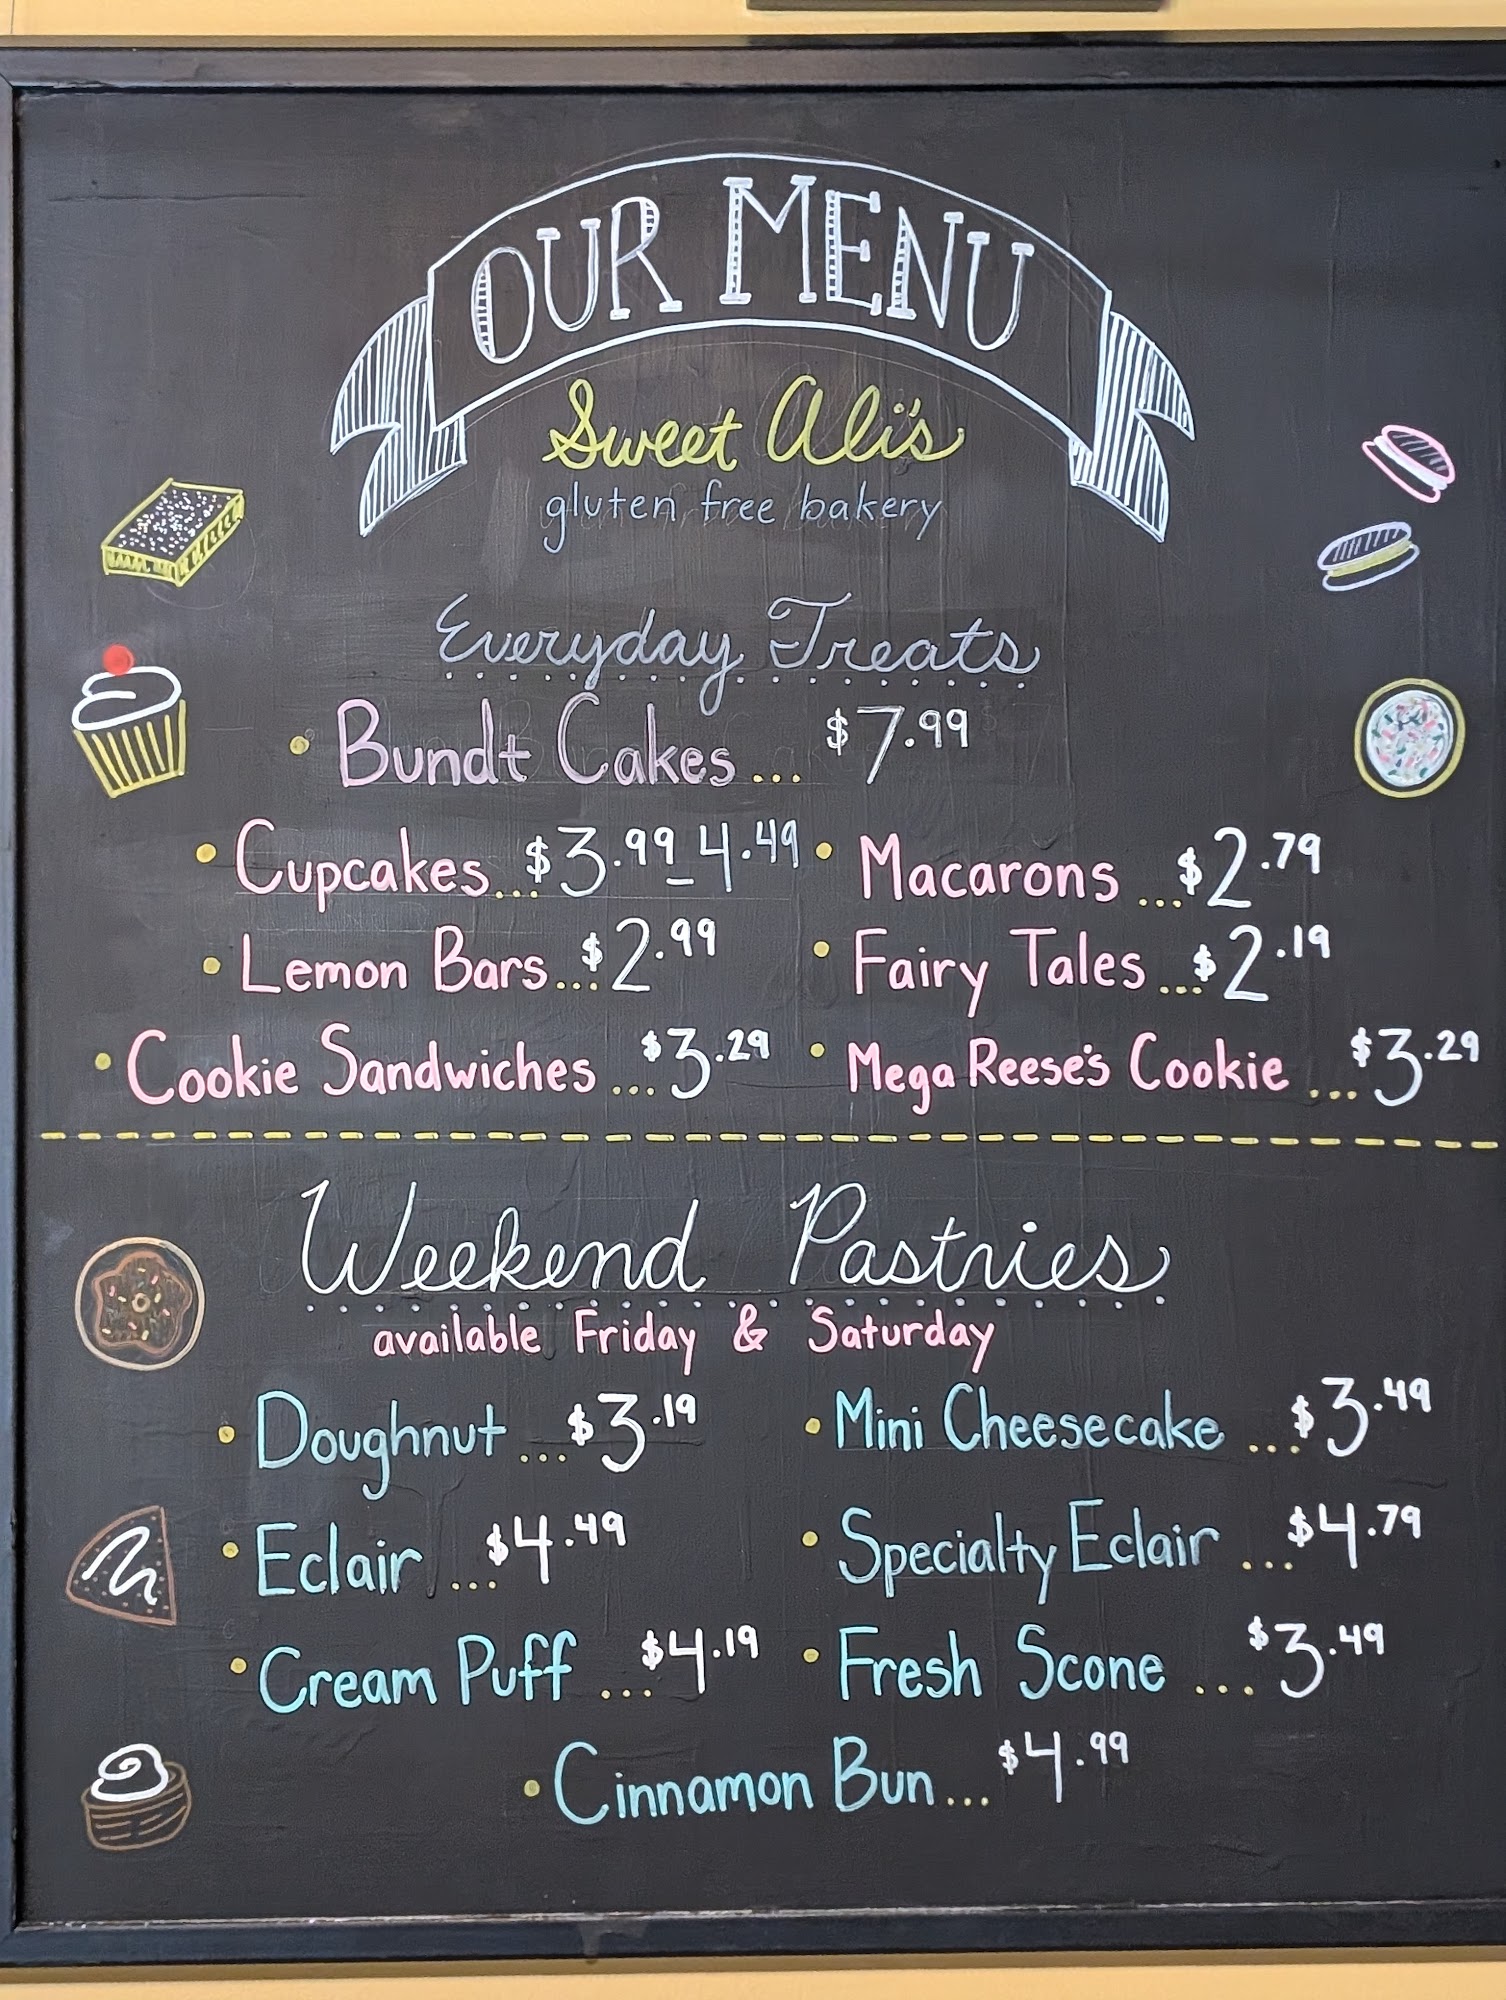 OUR MENU
Sweet Ali's
gluten free bakery
Everyday Treats
• Bundt Cakes... $7.99
• Cupcakes...$3.99-4.49 • Macarons ...$2.79
• Lemon Bars...$2.99 • Fairy Tales ...$2.19
• Cookie Sandwiches ...$3.29 • Mega Reese's Cookie ...$3.29
Weekend Pastries
available Friday & Saturday
• Doughnut ...$3.19 • Mini Cheesecake ...$3.49
• Eclair ...$4.49 • Specialty Eclair ...$4.79
• Cream Puff ...$4.19 • Fresh Scone ...$3.49
• Cinnamon Bun... $4.99